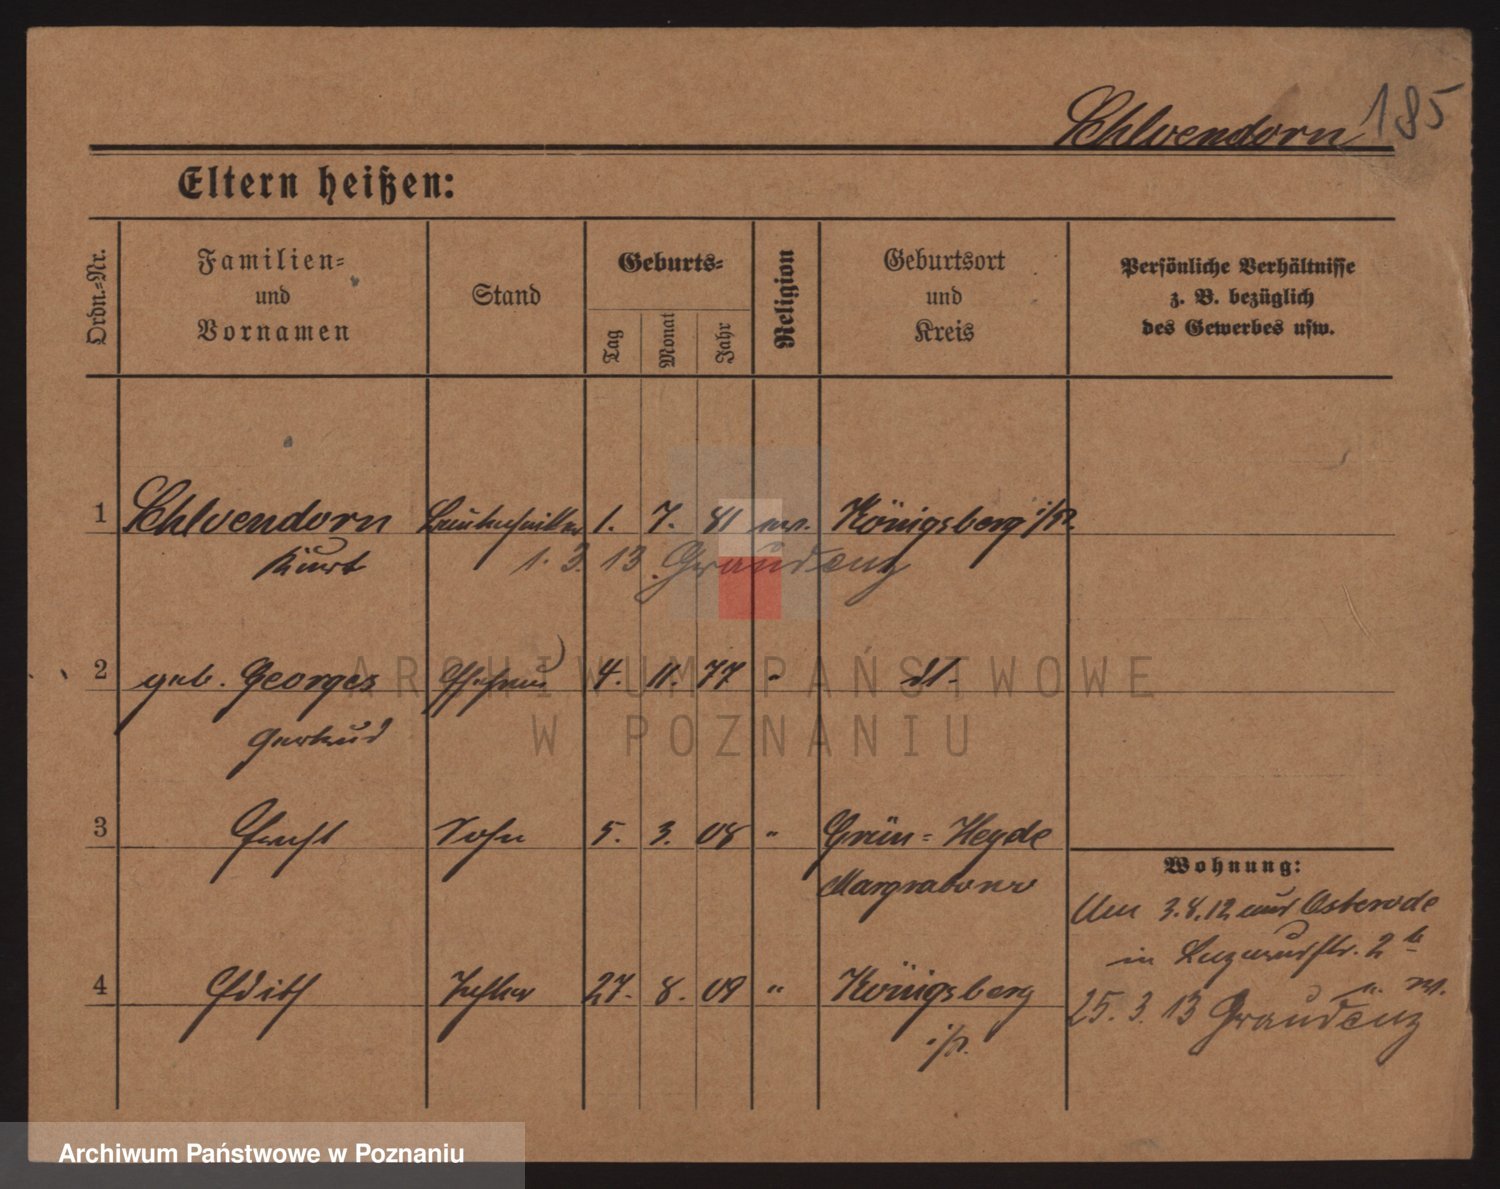 185
Schlvendorn
Eltern heißen:
Ordn.-Nr.
Familien-
und
Vornamen
Stand
Geburts-
Tag
Monat
Jahr
Religion
Geburtsort
und
Kreis
Persönliche Verhältnisse
z. B. bezüglich
des Gewerbes usw.
1 Bautechniker 1. 7. 81 ev. Königsberg i/Pr.
Kurt 1. 3. 13 Graudenz
2 geb. Georges Ehefrau 4. 11. 77 " dt.
Gertrud
3 Sohn 5. 3. 08 " Grün-Heyde
Margrabowo
4 Edith Tochter 27. 8. 09 " Königsberg
i/Pr.
Wohnung:
Am 3.8.12 aus Osterode
in 2
25. 3. 13 n. Graudenz
ARCHIWUM PAŃSTWOWE
W POZNANIU
Archiwum Państwowe w Poznaniu